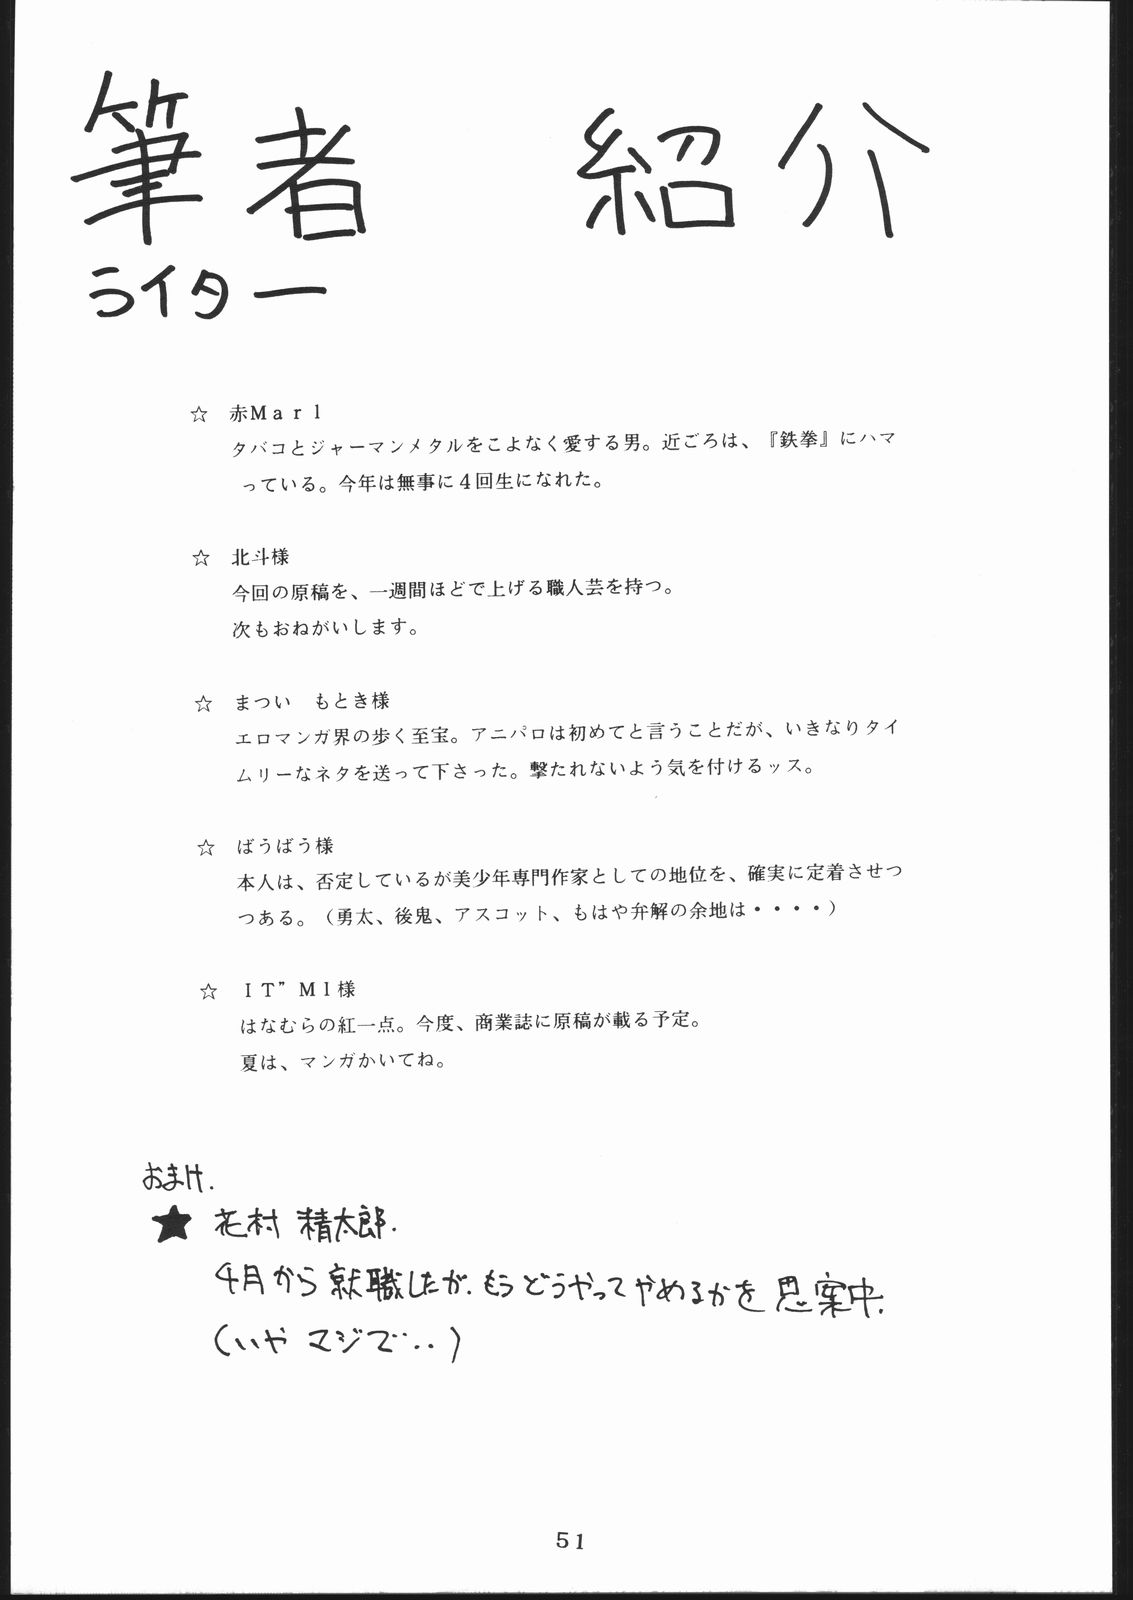 筆者　紹介
ライター
☆　赤Marl
タバコとジャーマンメタルをこよなく愛する男。近ごろは、『鉄拳』にハマ
っている。今年は無事に４回生になれた。
☆　北斗様
今回の原稿を、一週間ほどで上げる職人芸を持つ。
次もおねがいします。
☆　まつい　もとき様
エロマンガ界の歩く至宝。アニパロは初めてと言うことだが、いきなりタイ
ムリーなネタを送って下さった。撃たれないよう気を付けるッス。
☆　ばうばう様
本人は、否定しているが美少年専門作家としての地位を、確実に定着させつ
つある。（勇太、後鬼、アスコット、もはや弁解の余地は・・・・）
☆　ＩＴ”ＭＩ様
はなむらの紅一点。今度、商業誌に原稿が載る予定。
夏は、マンガかいてね。
おまけ.
★ 花村 精太郎.
4月から就職したが、もうどうやってやめるかを思案中.
(いや マジで‥‥)
51